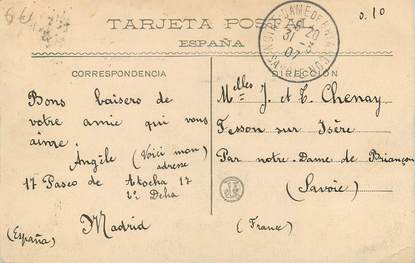 0.10
TARJETA POSTAL
ESPAÑA
CORRESPONDENCIA
Bons baisers de
votre amie qui vous
aime.
Angèle (Voici mon
adresse
17 Paseo de Atocha 17
2º Dcha
Madrid
(España)
DIRECCIÓN
Melles J. et C. Chenay
Fesson sur Isère
Par notre-Dame de Briançon
(Savoie)
(France)
NOTRE-DAME DE BRIANÇON